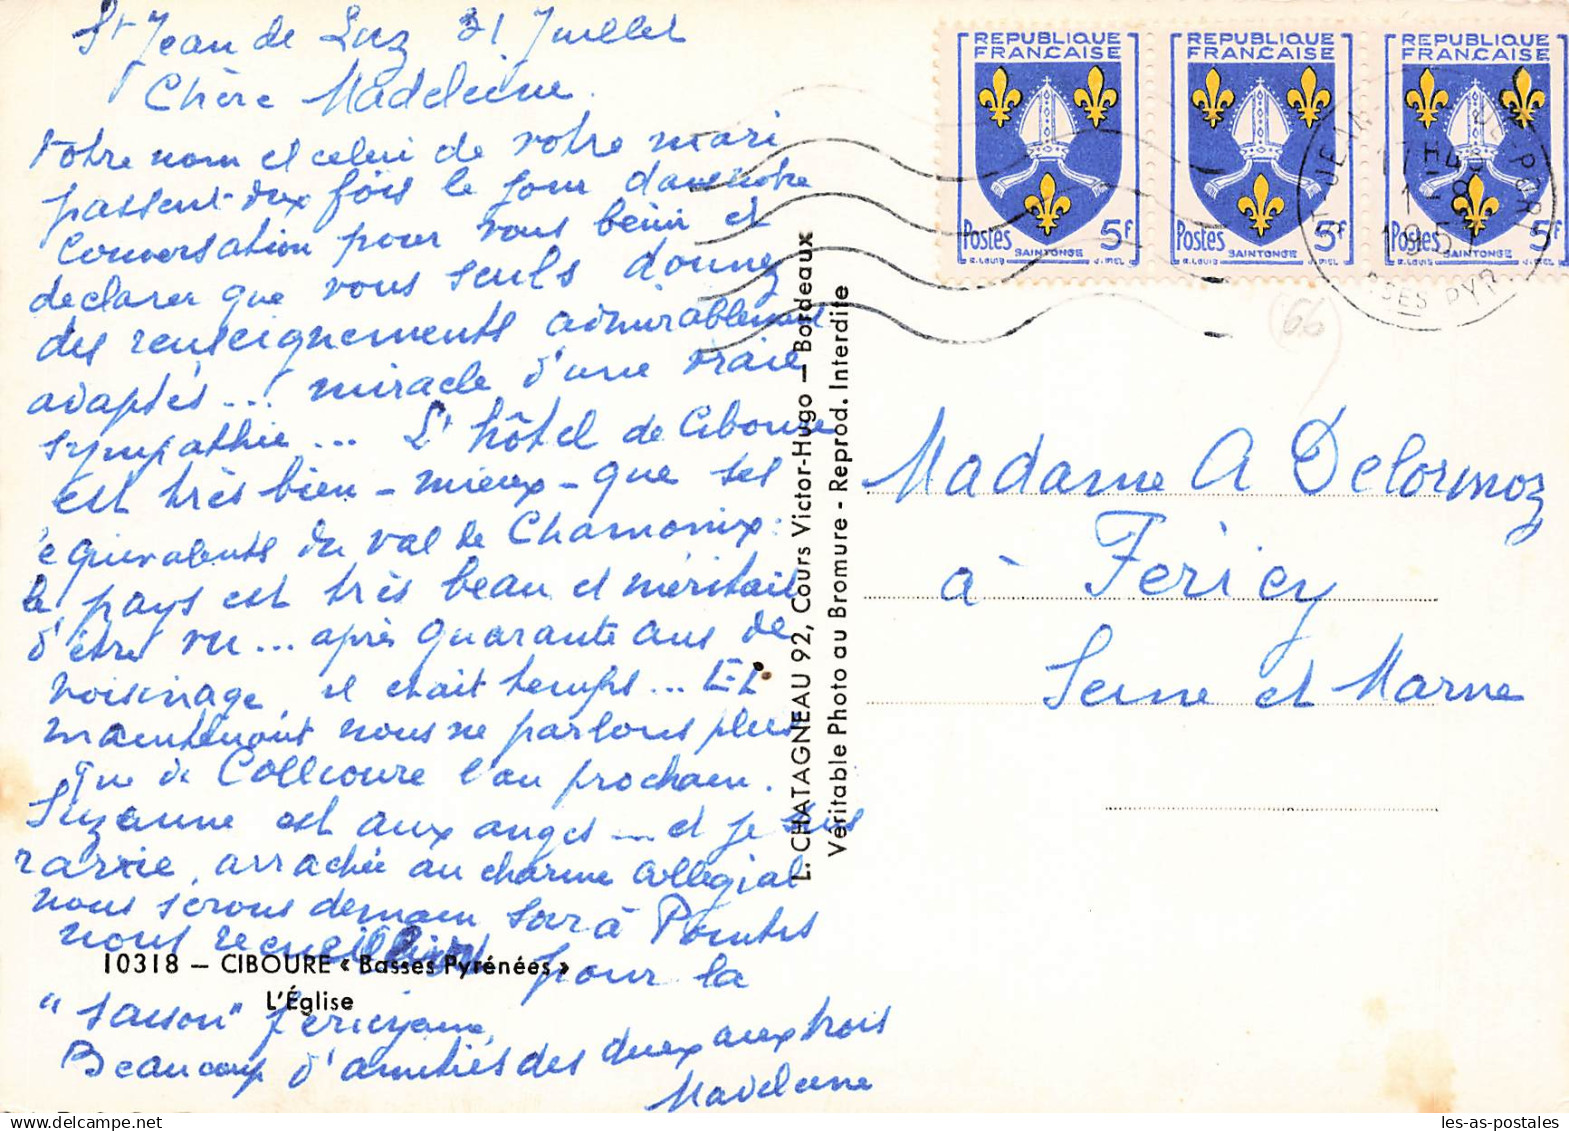 St Jean de Luz 31 Juillet
Chère Madeleine.
Votre nom et celui de votre mari
passent dix fois le jour dans notre
conversation pour vous bénir et
declarer que vous seuls donnez
des renseignements admirablement
adaptés... miracle d'une vraie
sympathie... L'hôtel de Ciboure
est très bien - mieux - que ses
équivalents du val de Chamonix:
le pays est très beau et méritait
d'être vu... après quarante ans de
voisinage, il était temps... Et
maintenant nous ne parlons plus
que de Collioure l'an prochain.
Suzanne est aux anges - et je suis
ravie, arrachée au charme collégial
nous serons demain soir à
nous recueillir pour la
"saison" fericyane.
Beaucoup d'amitiés des deux aux trois
Madeleine
10318 - CIBOURE « Basses Pyrénées »
L'Église
L. CHATAGNEAU 92, Cours Victor-Hugo - Bordeaux
Véritable Photo au Bromure - Reprod. Interdite
REPUBLIQUE FRANÇAISE
Postes 5F
SAINTONGE
REPUBLIQUE FRANÇAISE
Postes 5F
SAINTONGE
REPUBLIQUE FRANÇAISE
Postes 5F
SES PYR.
66
Madame A Delormoz
à Fericy
Seine et Marne
les-as-postales